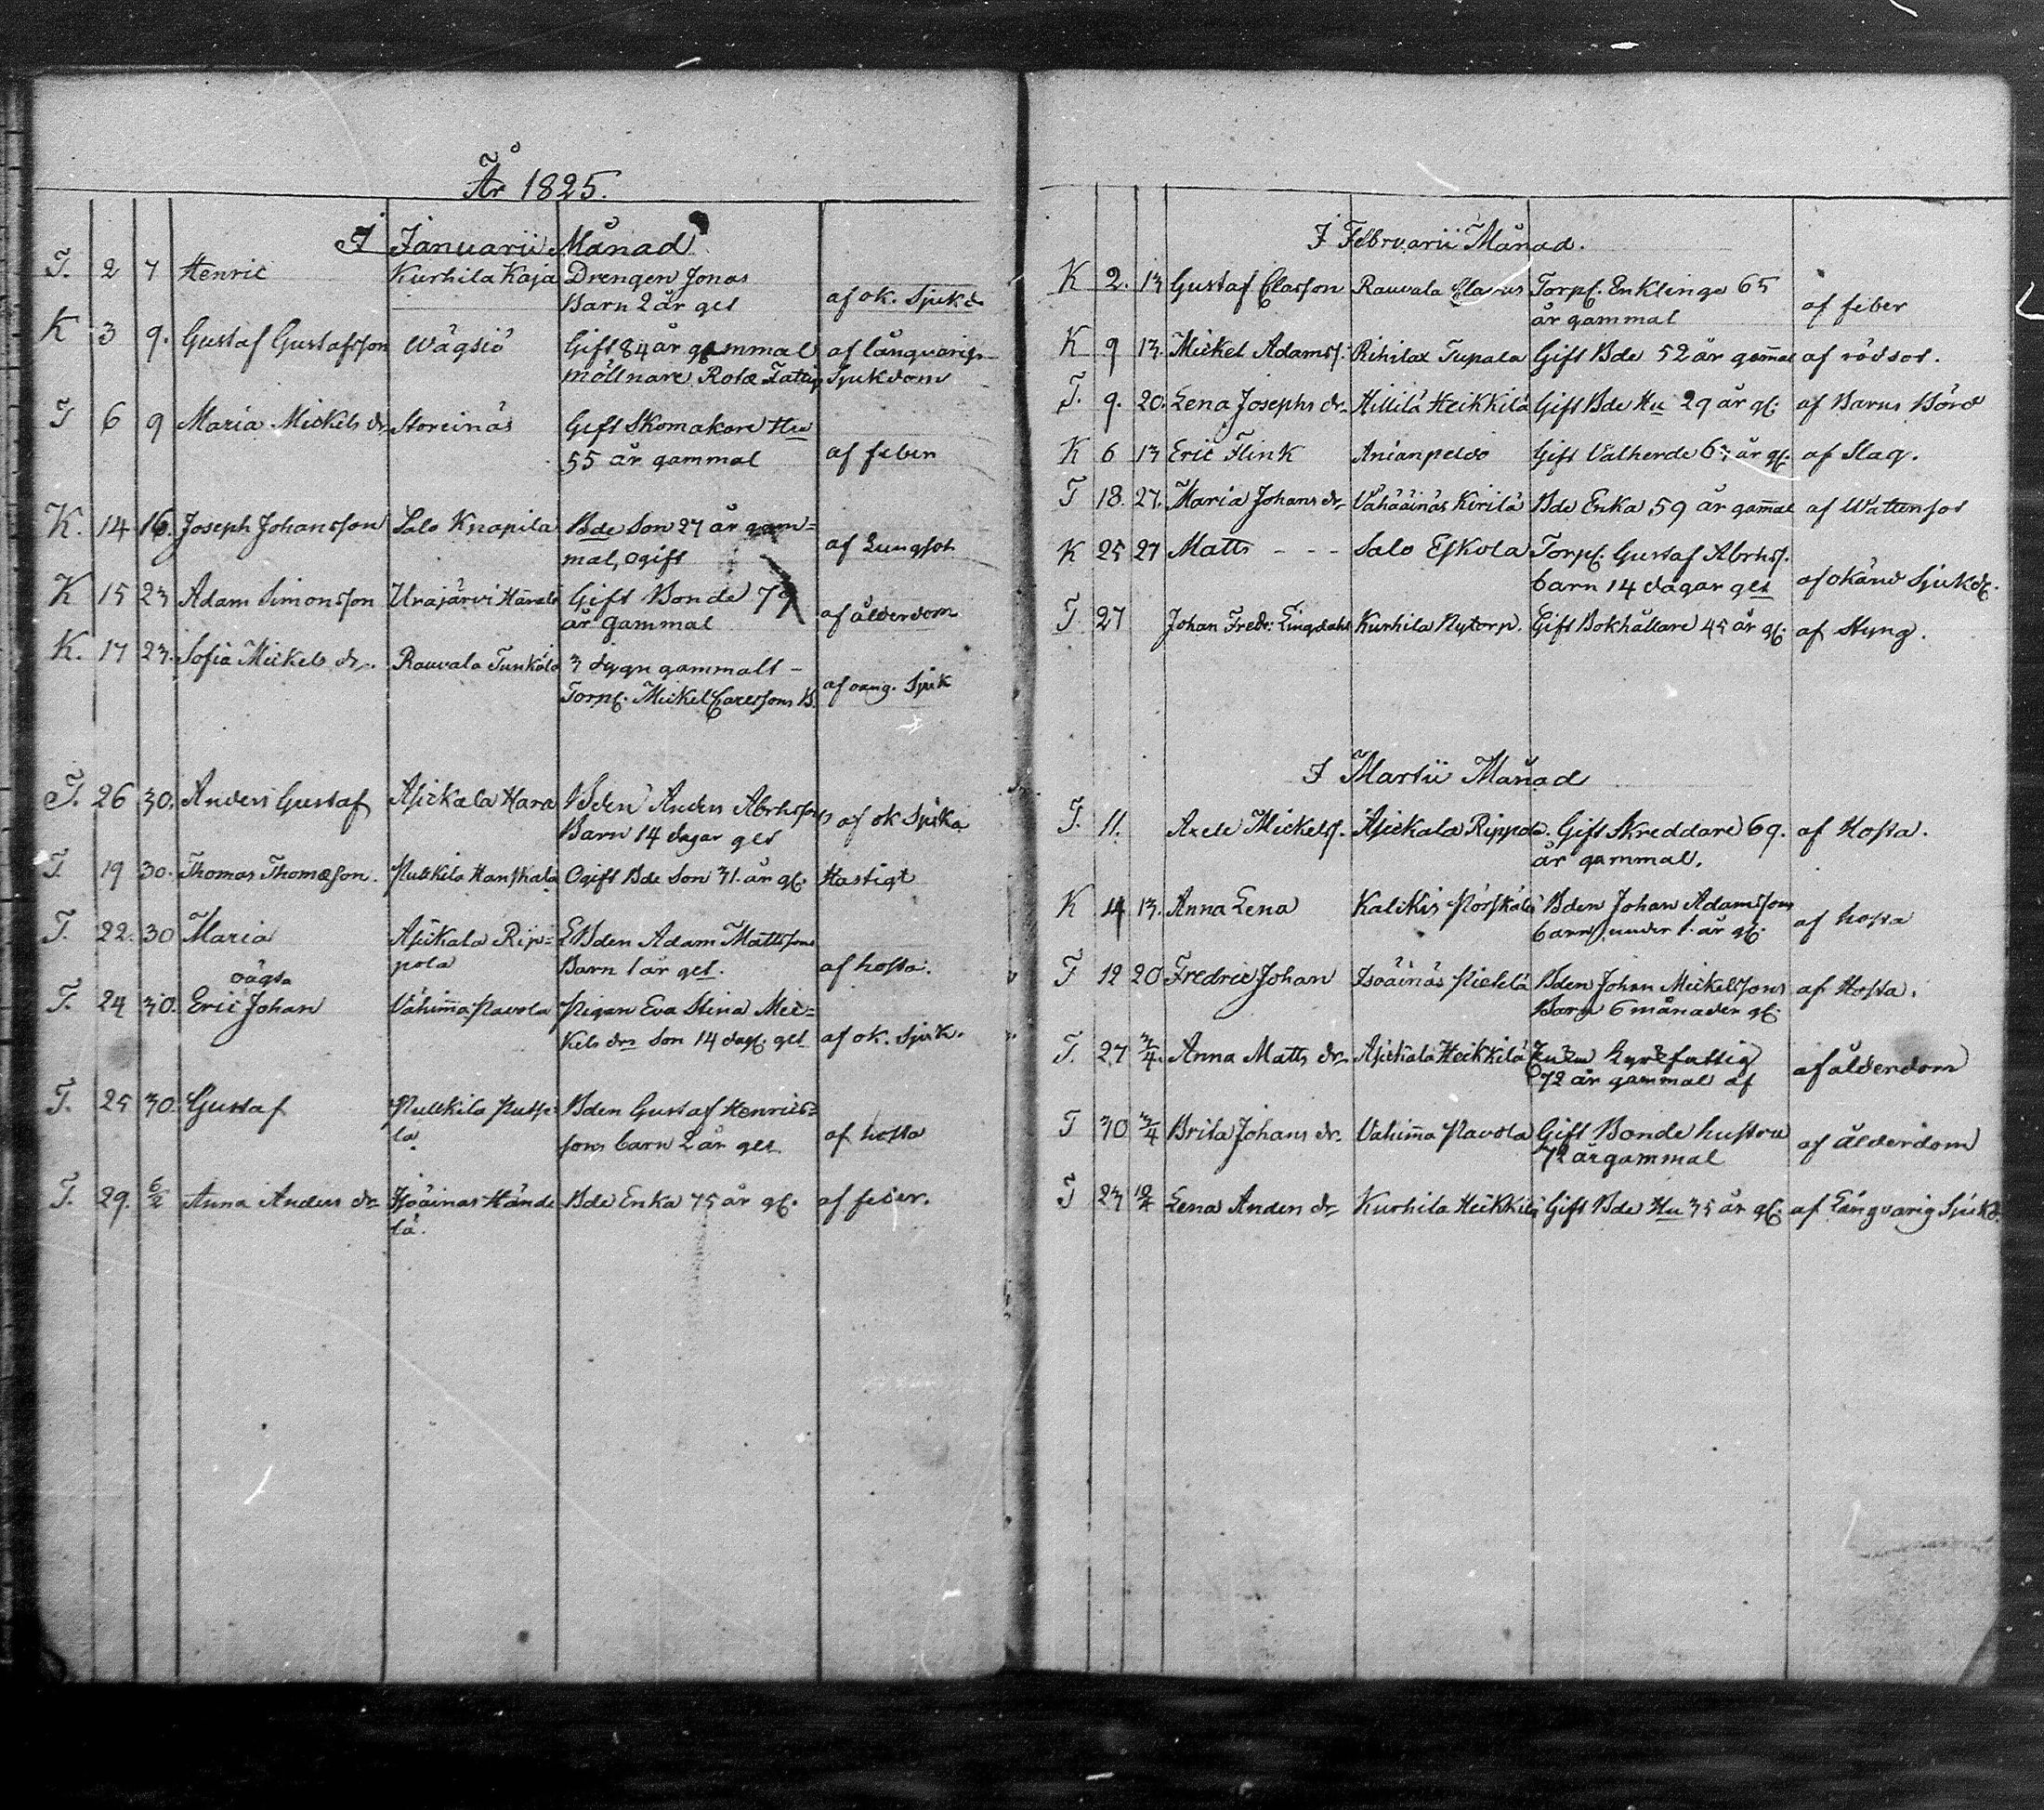 År 1825.
I Januarii Månad
T. 2 7 Henric Kurhila Kaja Drengen Jonas
Barn 2 år gl af ok. Sjukd
K 3 9. Gustaf Gustafsson Wägsiö Gift 84 år gammal af långvarig
möllnare Rote Fattig Sjukdom
T 6 9 Maria Mickels dr Storeinäs Gift Skomakare Hu
55 år gammal af feber
K. 14 16. Joseph Johansson Salo Knapila Bde Son 27 år gam=
mal, ogift af Lungsot
K 15 23 Adam Simonsson Urajärvi Gift Bonde
år gammal af ålderdom
K. 17 23. Sofia Mickels dr. Rauvala Tunkola 3 dygn gammalt –
Torp. Mickel B. af Sjuk
T. 26 30. Anders Gustaf Asickala Hara Bden Anders Abrhssons af ok Sjuka
Barn 14 dagar gl
T. 19 30. Thomas Thomæson. Pulkila Hanskala Ogift Bde Son 31. år gl. Hastigt
T. 22. 30 Maria Asikala Rip= Bden Adam Mattssons
pola Barn 1 år gl. af hosta.
oägta
T. 24 30. Eric Johan Vähimma Pavola Pigan Eva Stina Mic=
kels drs Son 14 dag. gl af ok. Sjuk.
T. 25 30. Gustaf Pulkila Bden Gustaf Henrics=
la sons barn 2 år gl af hosta
T. 29. 6/2 Anna Anders dr Isoäinäs Hände Bde Enka 75 år gl. af feber.
lä.
I Februarii Månad.
K 2. 13 Gustaf Classon Rauvala Torp. Enkling 65
år gammal af feber
K 9 13. Mickel Adamss. Rihilax Tupala Gift Bde 52 år gammal af rödsot.
T. 9. 20. Lena Josephs dr Hillilä Heikkilä Gift Bde Hu 29 år gl. af Barns Börd
K 6 13 Eric Flink Anianpeldo Gift Vatherde år gl. af Slag.
T 18. 27. Maria Johans dr Vähääinäs Kirilä Bde Enka 59 år gammal af Wattensot
K 25 27 Matts – – – Salo Eskola Torp. Gustaf Abrhss.
barn 14 dagar gl af okänd Sjukd.
T. 27 Johan Fredr: Lingdahl Kurhila Nytorp. Gift Bokhållare 45 år gl. af Styng.
I Martii Månad
T. 11. Axel Mickelss. Asickala Rippola. Gift Skreddare 69. af Hosta.
år gammal.
K 4 13. Anna Lena Kalikis Pörskälä Bden Johan Adamssons
barn under 1. år gl. af hosta
T 12 20 Fredric Johan Isoäinäs Pietilä Bden Johan Mickelssons
Barn 6 månader gl. af Hosta.
T. 27 3/4. Anna Matts dr Asickala Heikkilä fattig
72 år gammal af af ålderdom
T 30 3/4 Brita Johans dr. Vähimma Pavola Gift Bonde hustru
72 år gammal af ålderdom
T 23 Lena Anders dr Kurhila Heikkilä Gift Bde Hu 35 år gl. af Långvarig Sjukd.